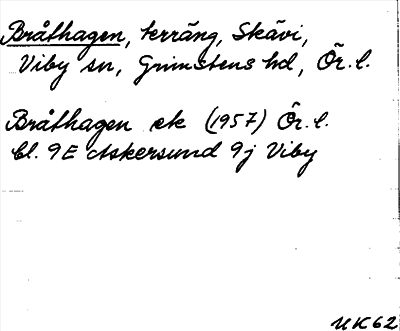 Bråthagen, terräng, Skävi,
Viby sn, Grimstens hd, Ör. l.
Bråthagen ek (1957) Ör. l.
Bl. 9E Askersund 9j Viby
UK62